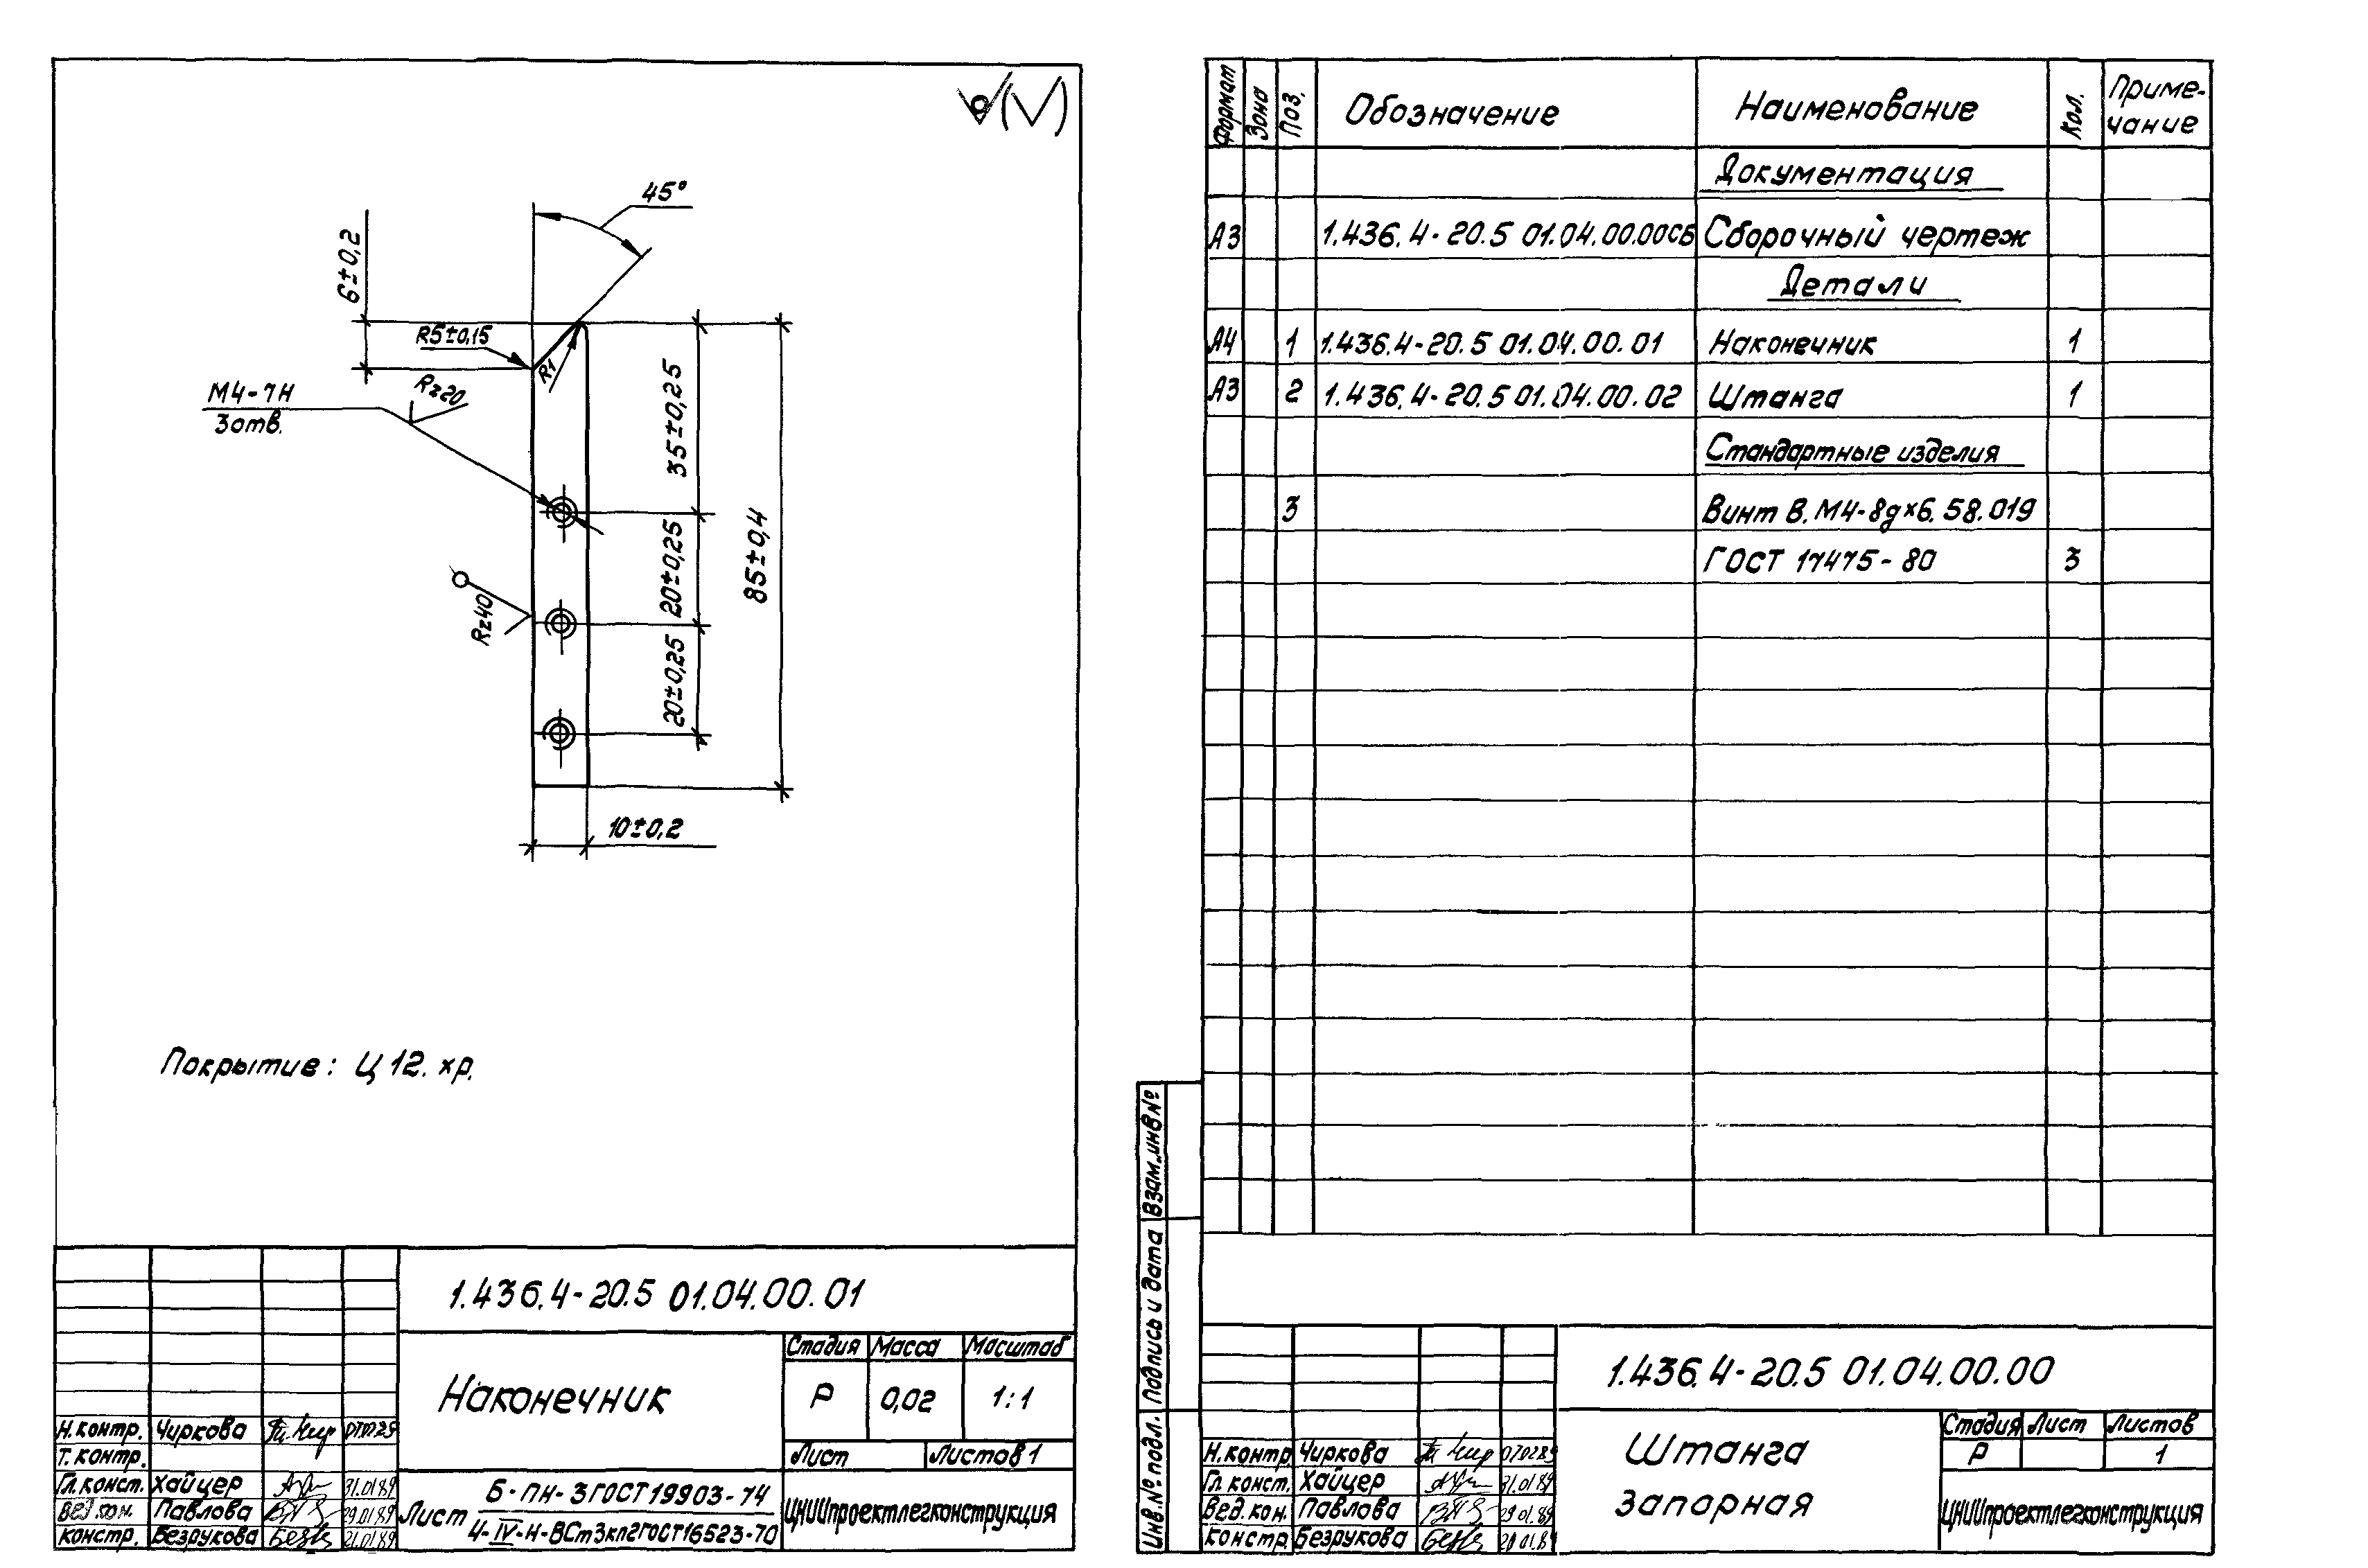 45°
6±0,2
R5±0,15
R1
Rz20
М4-7Н
3 отв.
35±0,25
20±0,25
20±0,25
85±0,4
Rz40
10±0,2
Покрытие: Ц 12. хр.
1.436.4-20.5 01.04.00.01
Наконечник
Стадия Масса Масштаб
Р 0,02 1:1
Лист Листов 1
Н.контр. Чиркова 070289
Т.контр.
Гл.конст. Хайцер 31.01.89
Вед.кон. Павлова 29.01.89
Констр. Безрукова 21.01.89
Лист Б-ПН-3 ГОСТ 19903-74
4-IV-Н-ВСт3кп2 ГОСТ 16523-70
ЦНИИпроектлегконструкция
Формат Зона Поз. Обозначение Наименование Кол. Приме-
чание
Документация
А3 1.436.4-20.5 01.04.00.00СБ Сборочный чертеж
Детали
А4 1 1.436.4-20.5 01.04.00.01 Наконечник 1
А3 2 1.436.4-20.5 01.04.00.02 Штанга 1
Стандартные изделия
3 Винт В.М4-8gх6.58.019
ГОСТ 17475-80 3
Взам.инв№
Подпись и дата
Инв.№ подл.
1.436.4-20.5 01.04.00.00
Штанга
запорная
Стадия Лист Листов
Р 1
Н.контр Чиркова 070289
Гл.конст. Хайцер 31.01.89
Вед.кон. Павлова 29.01.89
Констр. Безрукова 20.01.89
ЦНИИпроектлегконструкция